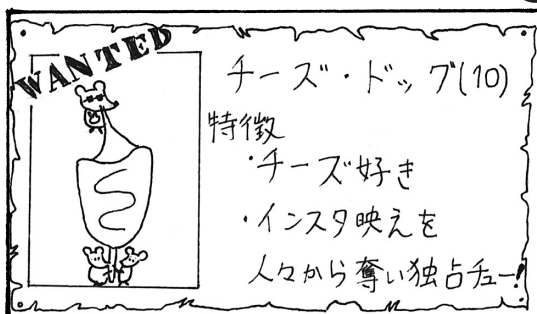 WANTED
チーズ・ドッグ(10)
特徴
・チーズ好き
・インスタ映えを
人々から奪い独占チュー!